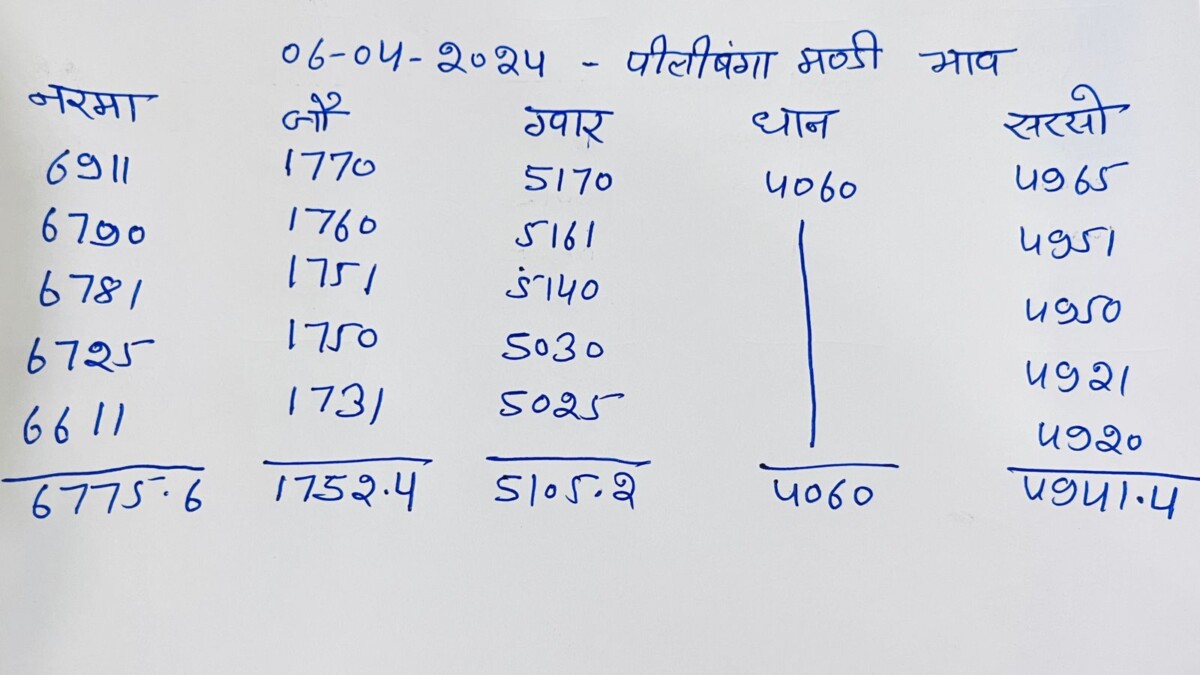 06-04-2024 - पीलीबंगा मण्डी भाव
नरमा जौ ग्वार धान सरसो
6911 1770 5170 4060 4965
6790 1760 5161 4951
6781 1751 5140 4950
6725 1750 5030 4921
6611 1731 5025 4920
6775.6 1752.4 5105.2 4060 4941.4